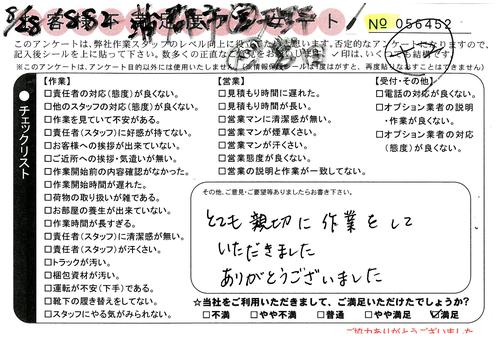 8/28
お客様不満足度アンケート
№ 056452
このアンケートは、弊社作業スタッフのレベル向上に役立てたいと思います。否定的なアンケートになりますので、
※このアンケートは、アンケート目的以外には使用いたしません。
チェックリスト
【作業】
□責任者の対応(態度)が良くない。
□他のスタッフの対応(態度)が良くない。
□作業を見ていて不安がある。
□責任者(スタッフ)に好感が持てない。
□お客様への挨拶が出来ていない。
□ご近所への挨拶・気遣いが無い。
□作業開始前の内容確認がなかった。
□作業開始時間が遅れた。
□荷物の取り扱いが雑である。
□お部屋の養生が出来ていない。
□作業時間が長すぎる。
□責任者(スタッフ)に清潔感が無い。
□責任者(スタッフ)が汗くさい。
□トラックが汚い。
□梱包資材が汚い。
□運転が不安(下手)である。
□靴下の履き替えをしてない。
□スタッフにやる気がみられない。
【営業】
□見積もりに遅れた。
□見積もり時間が長い。
□営業マンに清潔感が無い。
□営業マンが煙草くさい。
□営業マンが汗くさい。
□営業態度が良くない。
□営業の説明と作業が一致してない。
【受付・その他】
□電話の対応が良くない。
□オプション業者の説明
・作業が良くない。
□オプション業者の対応
(態度)が良くない。
その他、ご意見・ご要望等ありましたらお書き下さい。
とても親切に作業をして
いただきました
ありがとうございました
☆当社をご利用いただきまして、ご満足いただけたでしょうか?
□不満 □やや不満 □普通 □やや満足 ☑満足
ご協力ありがとうございました